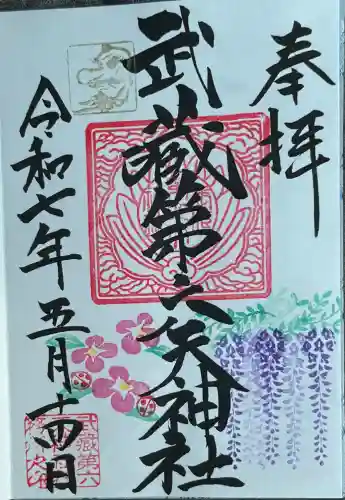 奉拝
武蔵第六天神社
令和七年五月十四日
武蔵第六